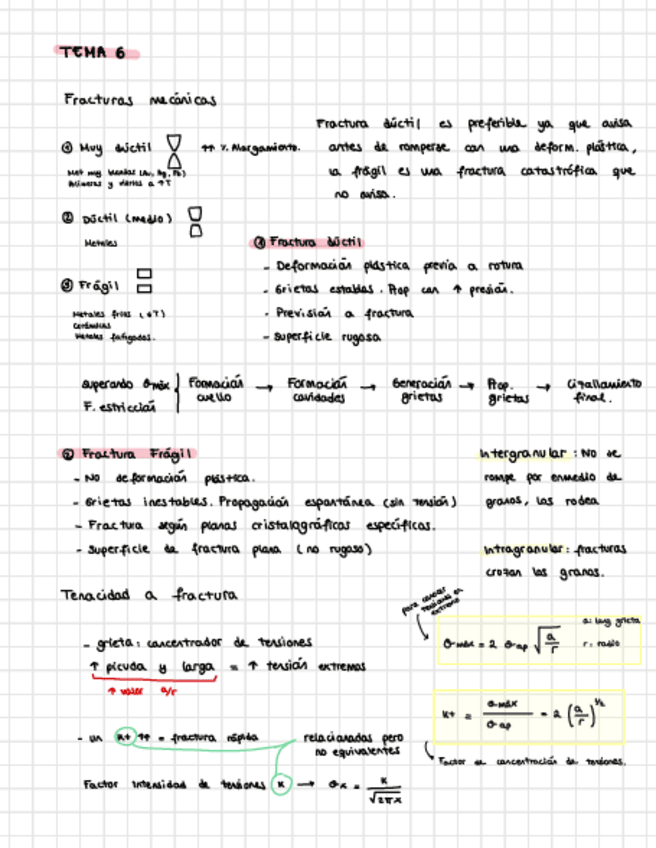 TEMA 6
Fracturas mecánicas
Fractura dúctil es preferible ya que avisa
antes de romperse con una deform. plástica,
la frágil es una fractura catastrófica que
no avisa.
① Muy dúctil ↑↑ % Alargamiento.
② Dúctil (medio)
Metales
③ Frágil
Metales fríos (↓T)
Cerámicas
Metales fatigados.
① Fractura dúctil
- Deformación plástica previa a rotura
- Grietas estables. Prop con ↑ presión.
- Previsión a fractura
- Superficie rugosa
Superando σmáx
F. estricción
Formación cuello → Formación cavidades → Generación grietas → Prop. grietas → Cizallamiento final.
② Fractura Frágil
- No deformación plástica.
- Grietas inestables. Propagación espontánea (sin tensión)
- Fractura según planos cristalográficos específicos.
- Superficie de fractura plana (no rugosa)
Intergranular: No se
rompe por enmedio de
granos, los rodea
Intragranular: fracturas
cruzan los granos.
Tenacidad a fractura
- grieta: concentrador de tensiones
↑ picuda y larga = ↑ tensión extremos
↑ valor a/r
para conocer
tensiones en
extremo
σmáx = 2 σap √(a/r)
a: long grieta
r: radio
Kt = σmáx / σap = 2 (a/r)^1/2
Factor de concentración de tensiones.
- un Kt ↑↑ = fractura rápida
relacionadas pero
no equivalentes
Factor Intensidad de tensiones K → σx = K / √2πx